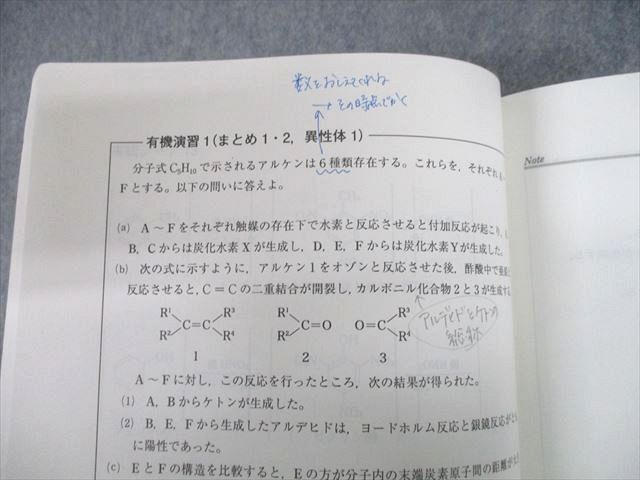 数をおしえてくれる
→その時点でかく
有機演習1(まとめ1・2，異性体1)
Note
分子式C₅H₁₀で示されるアルケンは6種類存在する。これらを，それぞれA〜
Fとする。以下の問いに答えよ。
(a) A〜Fをそれぞれ触媒の存在下で水素と反応させると付加反応が起こり，
B, Cからは炭化水素Xが生成し，D, E, Fからは炭化水素Yが生成した。
(b) 次の式に示すように，アルケン1をオゾンと反応させた後，酢酸中で亜鉛
反応させると，C＝Cの二重結合が開裂し，カルボニル化合物2と3が生成する
アルデヒドとケトンの
総称
R¹ R³ R¹ R³
C＝C C＝O O＝C
R² R⁴ R² R⁴
1 2 3
A〜Fに対し，この反応を行ったところ，次の結果が得られた。
(1) A, Bからケトンが生成した。
(2) B, E, Fから生成したアルデヒドは，ヨードホルム反応と銀鏡反応が
に陽性であった。
(c) EとFの構造を比較すると，Eの方が分子内の末端炭素原子間の距離が